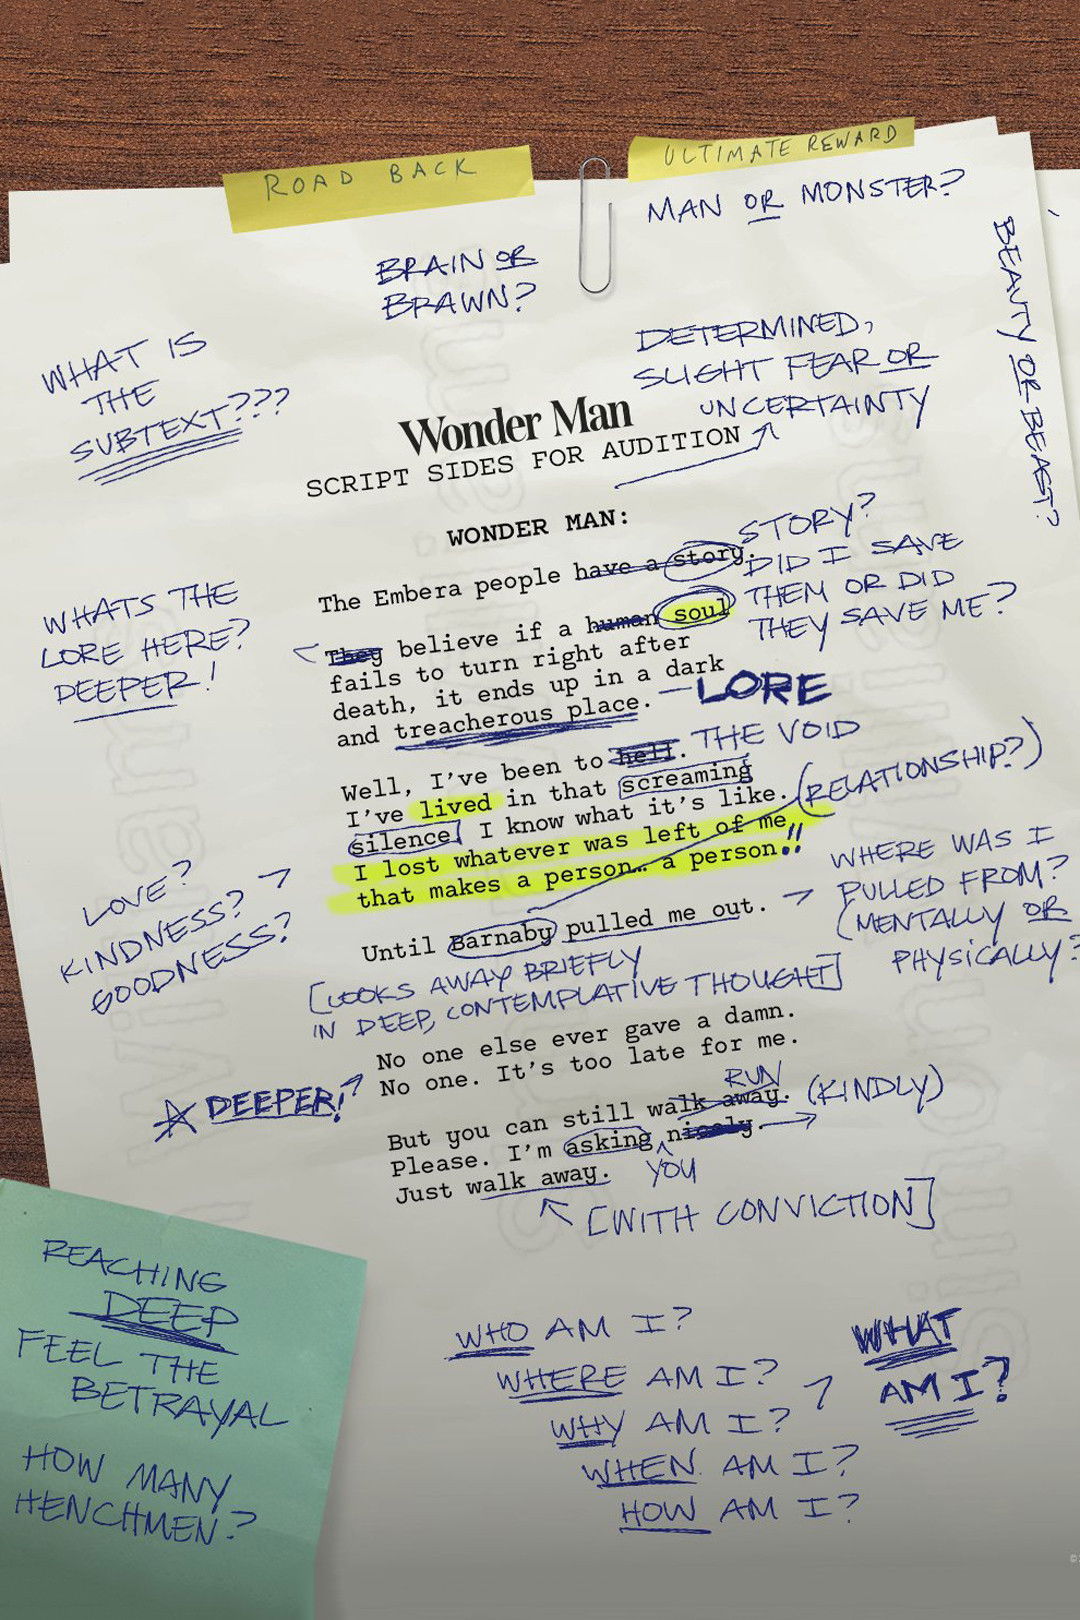 ROAD BACK
ULTIMATE REWARD
MAN OR MONSTER?
BEAUTY OR BEAST?
BRAIN OR
BRAWN?
WHAT IS
THE
SUBTEXT???
DETERMINED,
SLIGHT FEAR OR
UNCERTAINTY
Wonder Man
SCRIPT SIDES FOR AUDITION
WONDER MAN:
The Embera people have a story.
STORY?
DID I SAVE
THEM OR DID
THEY SAVE ME?
WHATS THE
LORE HERE?
DEEPER!
They believe if a human soul
fails to turn right after
death, it ends up in a dark
and treacherous place.
LORE
Well, I've been to hell. THE VOID
I've lived in that screaming
silence. I know what it's like.
(RELATIONSHIP?)
I lost whatever was left of me
that makes a person… a person.!!
LOVE?
KINDNESS?
GOODNESS?
Until Barnaby pulled me out.
WHERE WAS I
PULLED FROM?
(MENTALLY OR
PHYSICALLY?
[LOOKS AWAY BRIEFLY
IN DEEP, CONTEMPLATIVE THOUGHT]
No one else ever gave a damn.
No one. It's too late for me.
DEEPER!
RUN
But you can still walk away. (KINDLY)
Please. I'm asking nicely.
YOU
Just walk away.
[WITH CONVICTION]
REACHING
DEEP
FEEL THE
BETRAYAL
HOW MANY
HENCHMEN?
WHO AM I?
WHERE AM I?
WHY AM I?
WHEN AM I?
HOW AM I?
WHAT
AM I?